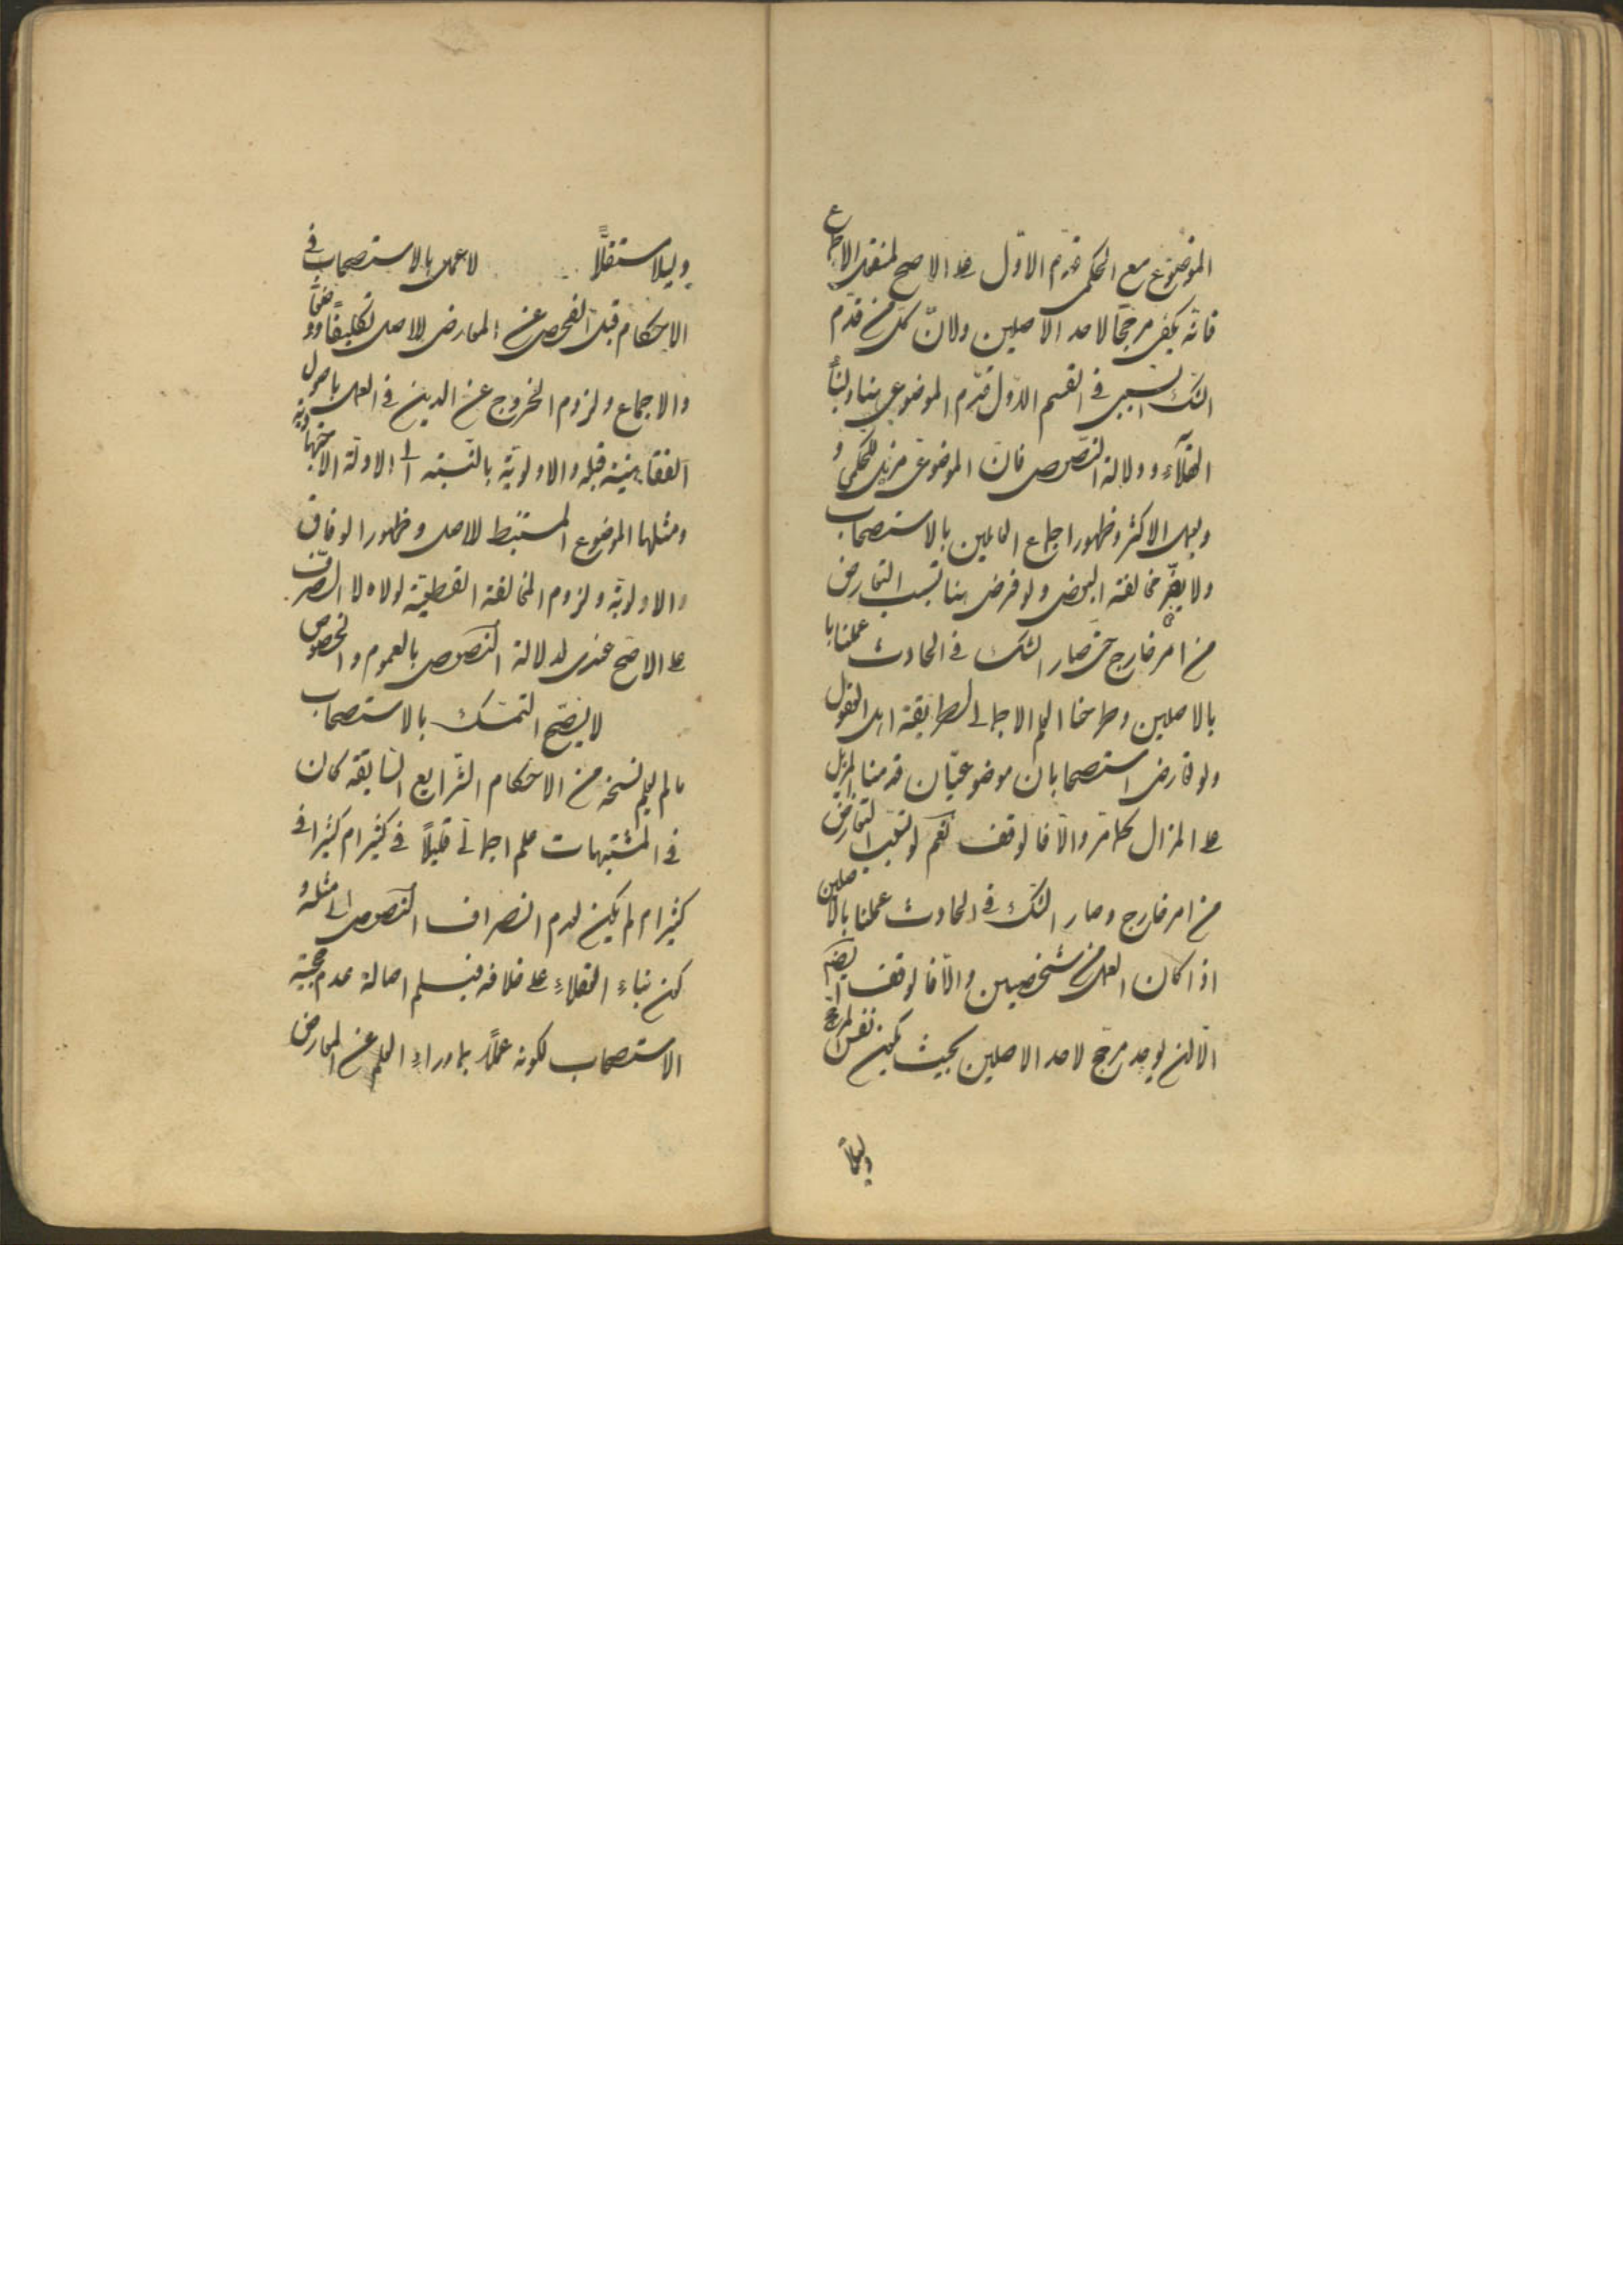 الموضوع مع الحكمى قدم الاول على الاصح لمنقول الاجماع
فانه يكفى مرجحا لاحد الاصلين ولان كل من قدم
الشك السببى فى القسم الاول قدم الموضوعى هنا ولبناء
العقلاء ودلالة النصوص فان الموضوعى مزيل للحكمى و
وعمل الاكثر وظهور اجماع العاملين بالاستصحاب
ولا يضر مخالفة البعض ولو فرض هنا تسبب التعارض
من امر خارج حتى صار الشك فى الحادث عملنا
بالاصلين وطرحنا العلم الاجمالى لطريقة اهل العقول
ولو تعارض استصحابان موضوعيان قدمنا المزيل
على المزال كما مر والا فالوقف نعم لو تسبب التعارض
من امر خارج وصار الشك فى الحادث عملنا بالاصلين
اذا كان العمل من شخصين والا فالوقف ايضا
الا ان يوجد مرجح لاحد الاصلين بحيث يكون نفس المرجح
دليلا
دليلا مستقلا لا عمل بالاستصحاب فى
الاحكام قبل الفحص عن المعارض للاصل تكليفا ووضعا
والاجماع ولزوم الخروج عن الدين فى العمل باصول
الفقاهية قبله والاولوية بالنسبة الى الادلة الاجتهادية
ومثلها الموضوع المستنبط للاصل وظهور الوفاق
والاولوية ولزوم المخالفة القطعية لولاه لا الصرف
على الاصح عندى لدلالة النصوص بالعموم والخصوص
لا يصح التمسك بالاستصحاب
ما لم يعلم نسخه من الاحكام الشرايع السابقة كان
فى المشتبهات علم اجمالى قليلا فى كثير ام كثيرا فى
كثير ام لم يكن لعدم انصراف النصوص الى مثله و
كون بناء العقلاء على خلافه فيسلم اصالة عدم حجية
الاستصحاب لكونه عملا بما وراء العلم عن المعارض